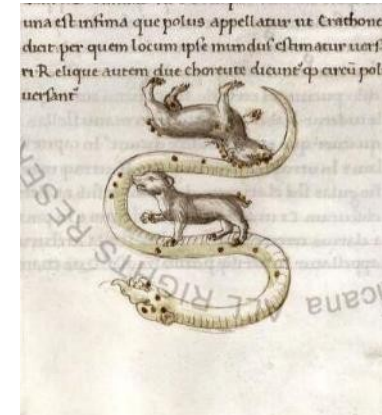 una est infima que polus appellatur ut Erathone
dicit per quem locum ipse mundus estimatur uers
ri Relique autem due choreute dicunt' qp circū pol
uersant'
RIGHTS RESER
icana ALL RIGHTS